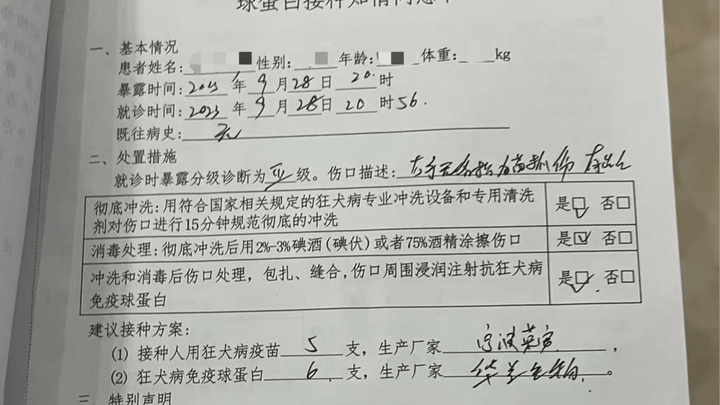 球蛋白接种知情同意
一、基本情况
患者姓名: 性别: 年龄: 体重: kg
暴露时间:2023年9月28日20时
就诊时间:2023年9月28日20时56.
既往病史:无
二、处置措施
就诊时暴露分级诊断为Ⅳ级。伤口描述:
彻底冲洗:用符合国家相关规定的狂犬病专业冲洗设备和专用清洗 是☑ 否□
剂对伤口进行15分钟规范彻底的冲洗
消毒处理:彻底冲洗后用2%-3%碘酒(碘伏)或者75%酒精涂擦伤口 是☑ 否□
冲洗和消毒后伤口处理,包扎、缝合,伤口周围浸润注射抗狂犬病 是☑ 否□
免疫球蛋白
建议接种方案:
(1) 接种人用狂犬病疫苗5支,生产厂家,
(2) 狂犬病免疫球蛋白6支,生产厂家。
三 特别声明